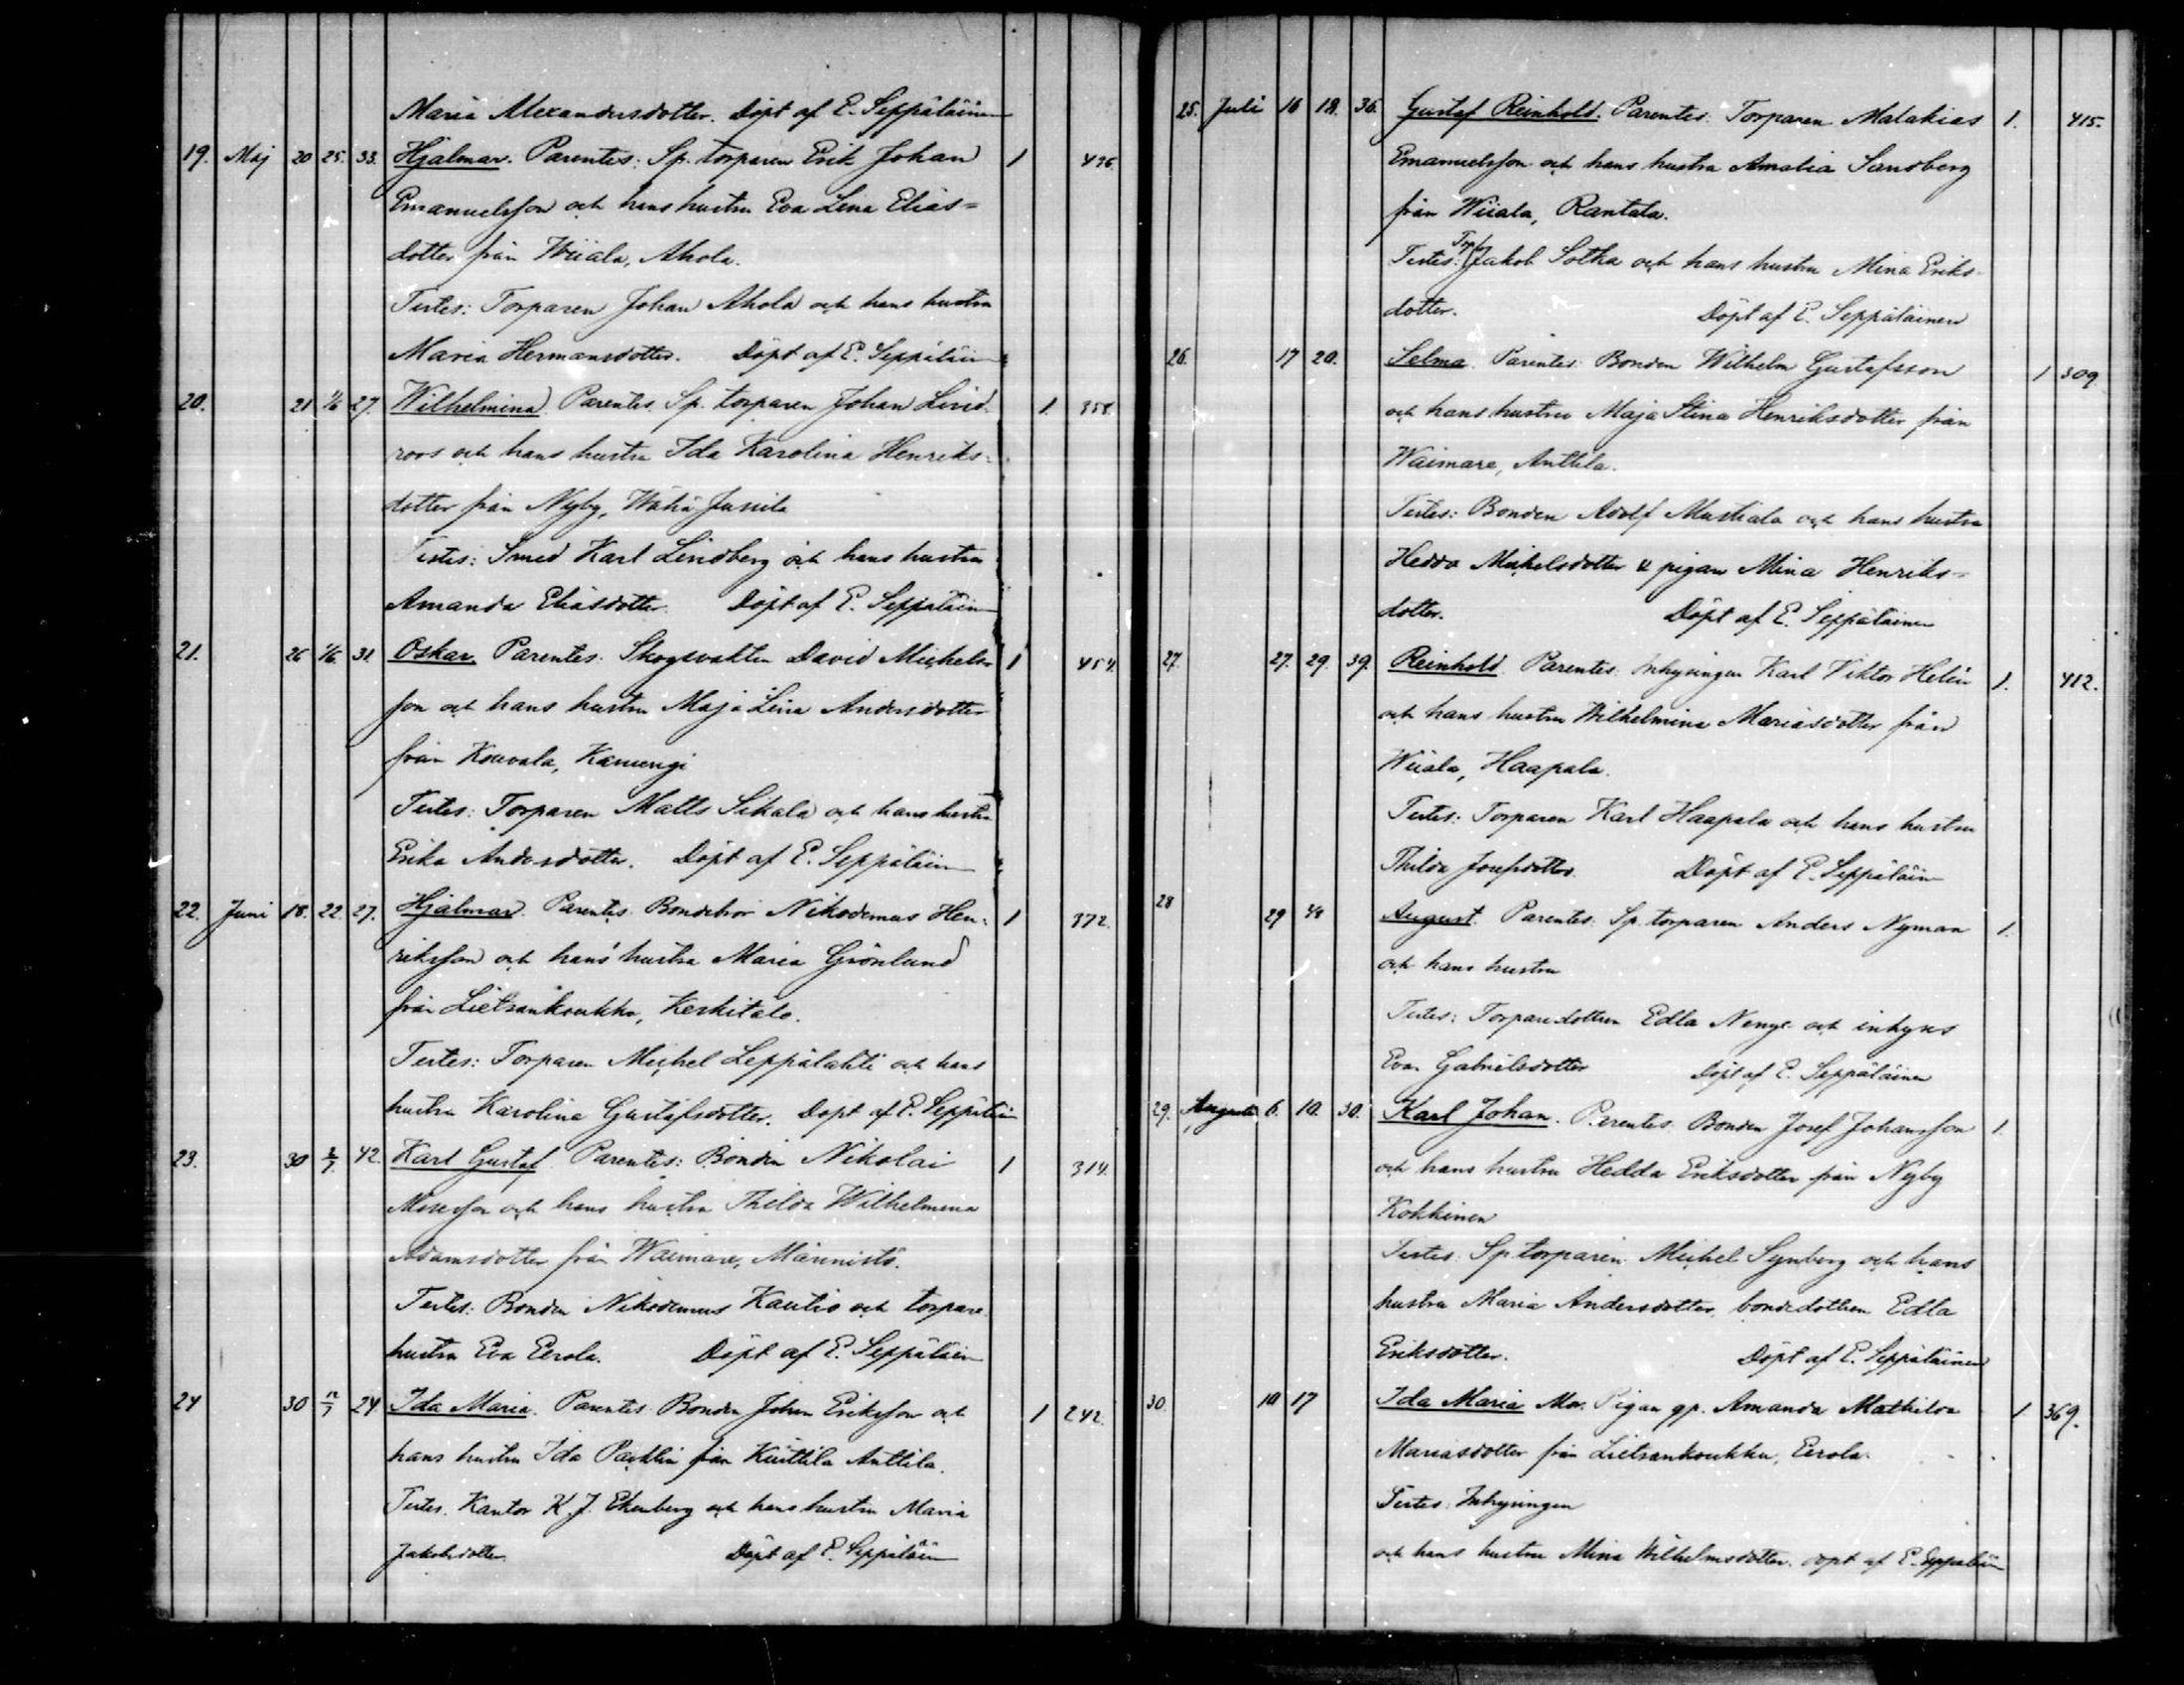 Maria Alexandersdotter. Döpt af E. Seppäläinen
19. Maj 20 25. 33. Hjalmar. Parentes: Sp. torparen Erik Johan 1 436.
Emanuelsson och hans hustru Eva Lena Elias=
dotter från Wiiala, Ahola.
Testes: Torparen Johan Ahola och hans hustru
Maria Hermansdotter. Döpt af E. Seppäläin
20. 21 1/6 27. Wilhelmina. Parentes. Sp. torparen Johan Lind 1. 358.
roos och hans hustru Ida Karolina Henriks=
dotter från Nyby, Wähä Jussila
Testes: Smed Karl Lindberg och hans hustru
Amanda Eliasdotter. Döpt af E. Seppäläin
21. 26 1/6. 31. Oskar. Parentes. Skogsvakten David Michels= 1 454.
son och hans hustru Maja Lena Andersdotter
från Kouvala,
Testes: Torparen Matts Sikala och hans hustru
Erika Andersdotter. Döpt af E. Seppäläin
22. Juni 18. 22. 27. Hjalmar. Parentes. Nikodemus Hen= 1 372.
riksson och hans hustru Maria Grönlund
från Lietsankoukku, Keskitalo.
Testes: Torparen Michel Leppälahti och hans
hustru Karolina Gustafsdotter. Döpt af E. Seppäläin
23. 30 2/7. 42. Karl Gustaf. Parentes: Bonden Nikolai 1 314.
Mosesson och hans hustru Thilda Wilhelmina
Adamsdotter från Waimare, Männistö.
Testes: Bonden Nikodemus Kautio och torpare
hustru Eva Eerola. Döpt af E. Seppäläin
24 30 12/7 24 Ida Maria. Parentes. Bonden Johan Eriksson och 1 242.
hans hustru Ida från Kuittila Anttila.
Testes. Kantor K. J. Ekenberg och hans hustru Maria
Jakobsdotter. Döpt af E. Seppäläin
25. Juli 16 18. 36. Gustaf Reinhold. Parentes. Torparen Malakias 1. 415.
Emanuelsson och hans hustru Amalia Sandberg
från Wiiala, Rantala.
Testes: Torp. Jakob Sotka och hans hustru Mina Eriks=
dotter. Döpt af E. Seppäläinen
26. 17 20. Selma. Parentes: Bonden Wilhelm Gustafsson 1 309
och hans hustru Maja Stina Henriksdotter från
Waimare, Anttila.
Testes: Bonden Adolf Mustiala och hans hustru
Hedda Michelsdotter & pigan Mina Henriks=
dotter. Döpt af E. Seppäläinen
27. 27. 29. 39. Reinhold. Parentes: Inhysingen Karl Viktor Helin 1. 412.
och hans hustru Wilhelmina Mariasdotter från
Wiiala, Haapala.
Testes: Torparen Karl Haapala och hans hustru
Thilda Josefsdotter. Döpt af E. Seppäläin
28 29 4/8 August. Parentes. Sp. torparen Anders Nyman 1.
och hans hustru
Testes: Torparedottren Edla och inhyses
Eva Gabrielsdotter Döpt af E. Seppäläinen
29. Augusti 6. 10. 30. Karl Johan. Parentes. Bonden Josef Johansson 1.
och hans hustru Hedda Eriksdotter från Nyby
Kokkinen
Testes: Sp. torparen Michel Synberg och hans
hustru Maria Andersdotter, bondedottren Edla
Eriksdotter. Döpt af E. Seppäläinen
30. 10 17 Ida Maria Mor. Pigan gp. Amanda Mathilda 1 369.
Mariasdotter från Lietsankoukku, Eerola.
Testes: Inhysingen
och hans hustru Mina Wilhelmsdotter. döpt af E. Seppäläin